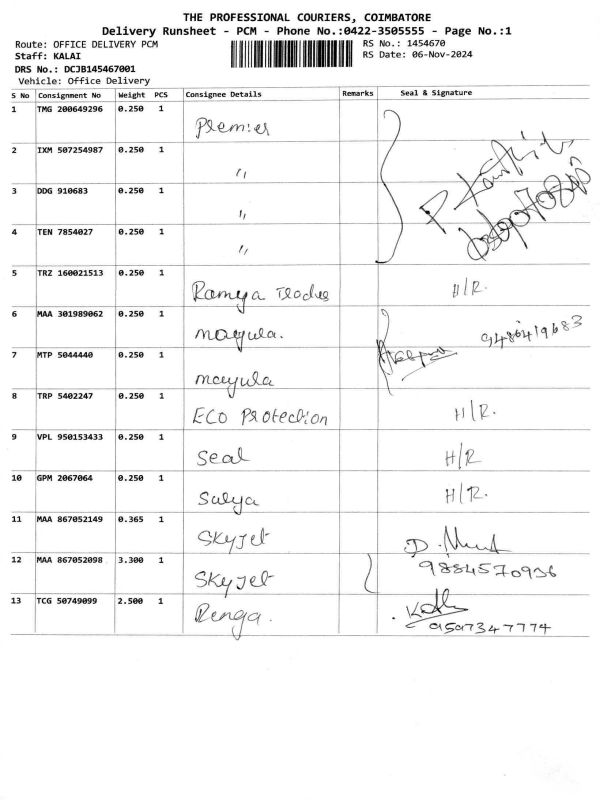 THE PROFESSIONAL COURIERS, COIMBATORE
Delivery Runsheet - PCM - Phone No.:0422-3505555 - Page No.:1
Route: OFFICE DELIVERY PCM
RS No.: 1454670
Staff: KALAI
RS Date: 06-Nov-2024
DRS No.: DCJB145467001
Vehicle: Office Delivery
S No Consignment No Weight PCS Consignee Details Remarks Seal & Signature
1 TMG 200649296 0.250 1 Premier
2 IXM 507254987 0.250 1 "
3 DDG 910683 0.250 1 "
4 TEN 7854027 0.250 1 "
5 TRZ 160021513 0.250 1 Ramya H/R.
6 MAA 301989062 0.250 1 mayula. 9486419683
7 MTP 5044440 0.250 1 mayula
8 TRP 5402247 0.250 1 ECO Protection H/R.
9 VPL 950153433 0.250 1 Seal H/R
10 GPM 2067064 0.250 1 Surya H/R.
11 MAA 867052149 0.365 1 SkyJet D.
12 MAA 867052098 3.300 1 SkyJet 9884570936
13 TCG 50749099 2.500 1 Renga. 9597347774